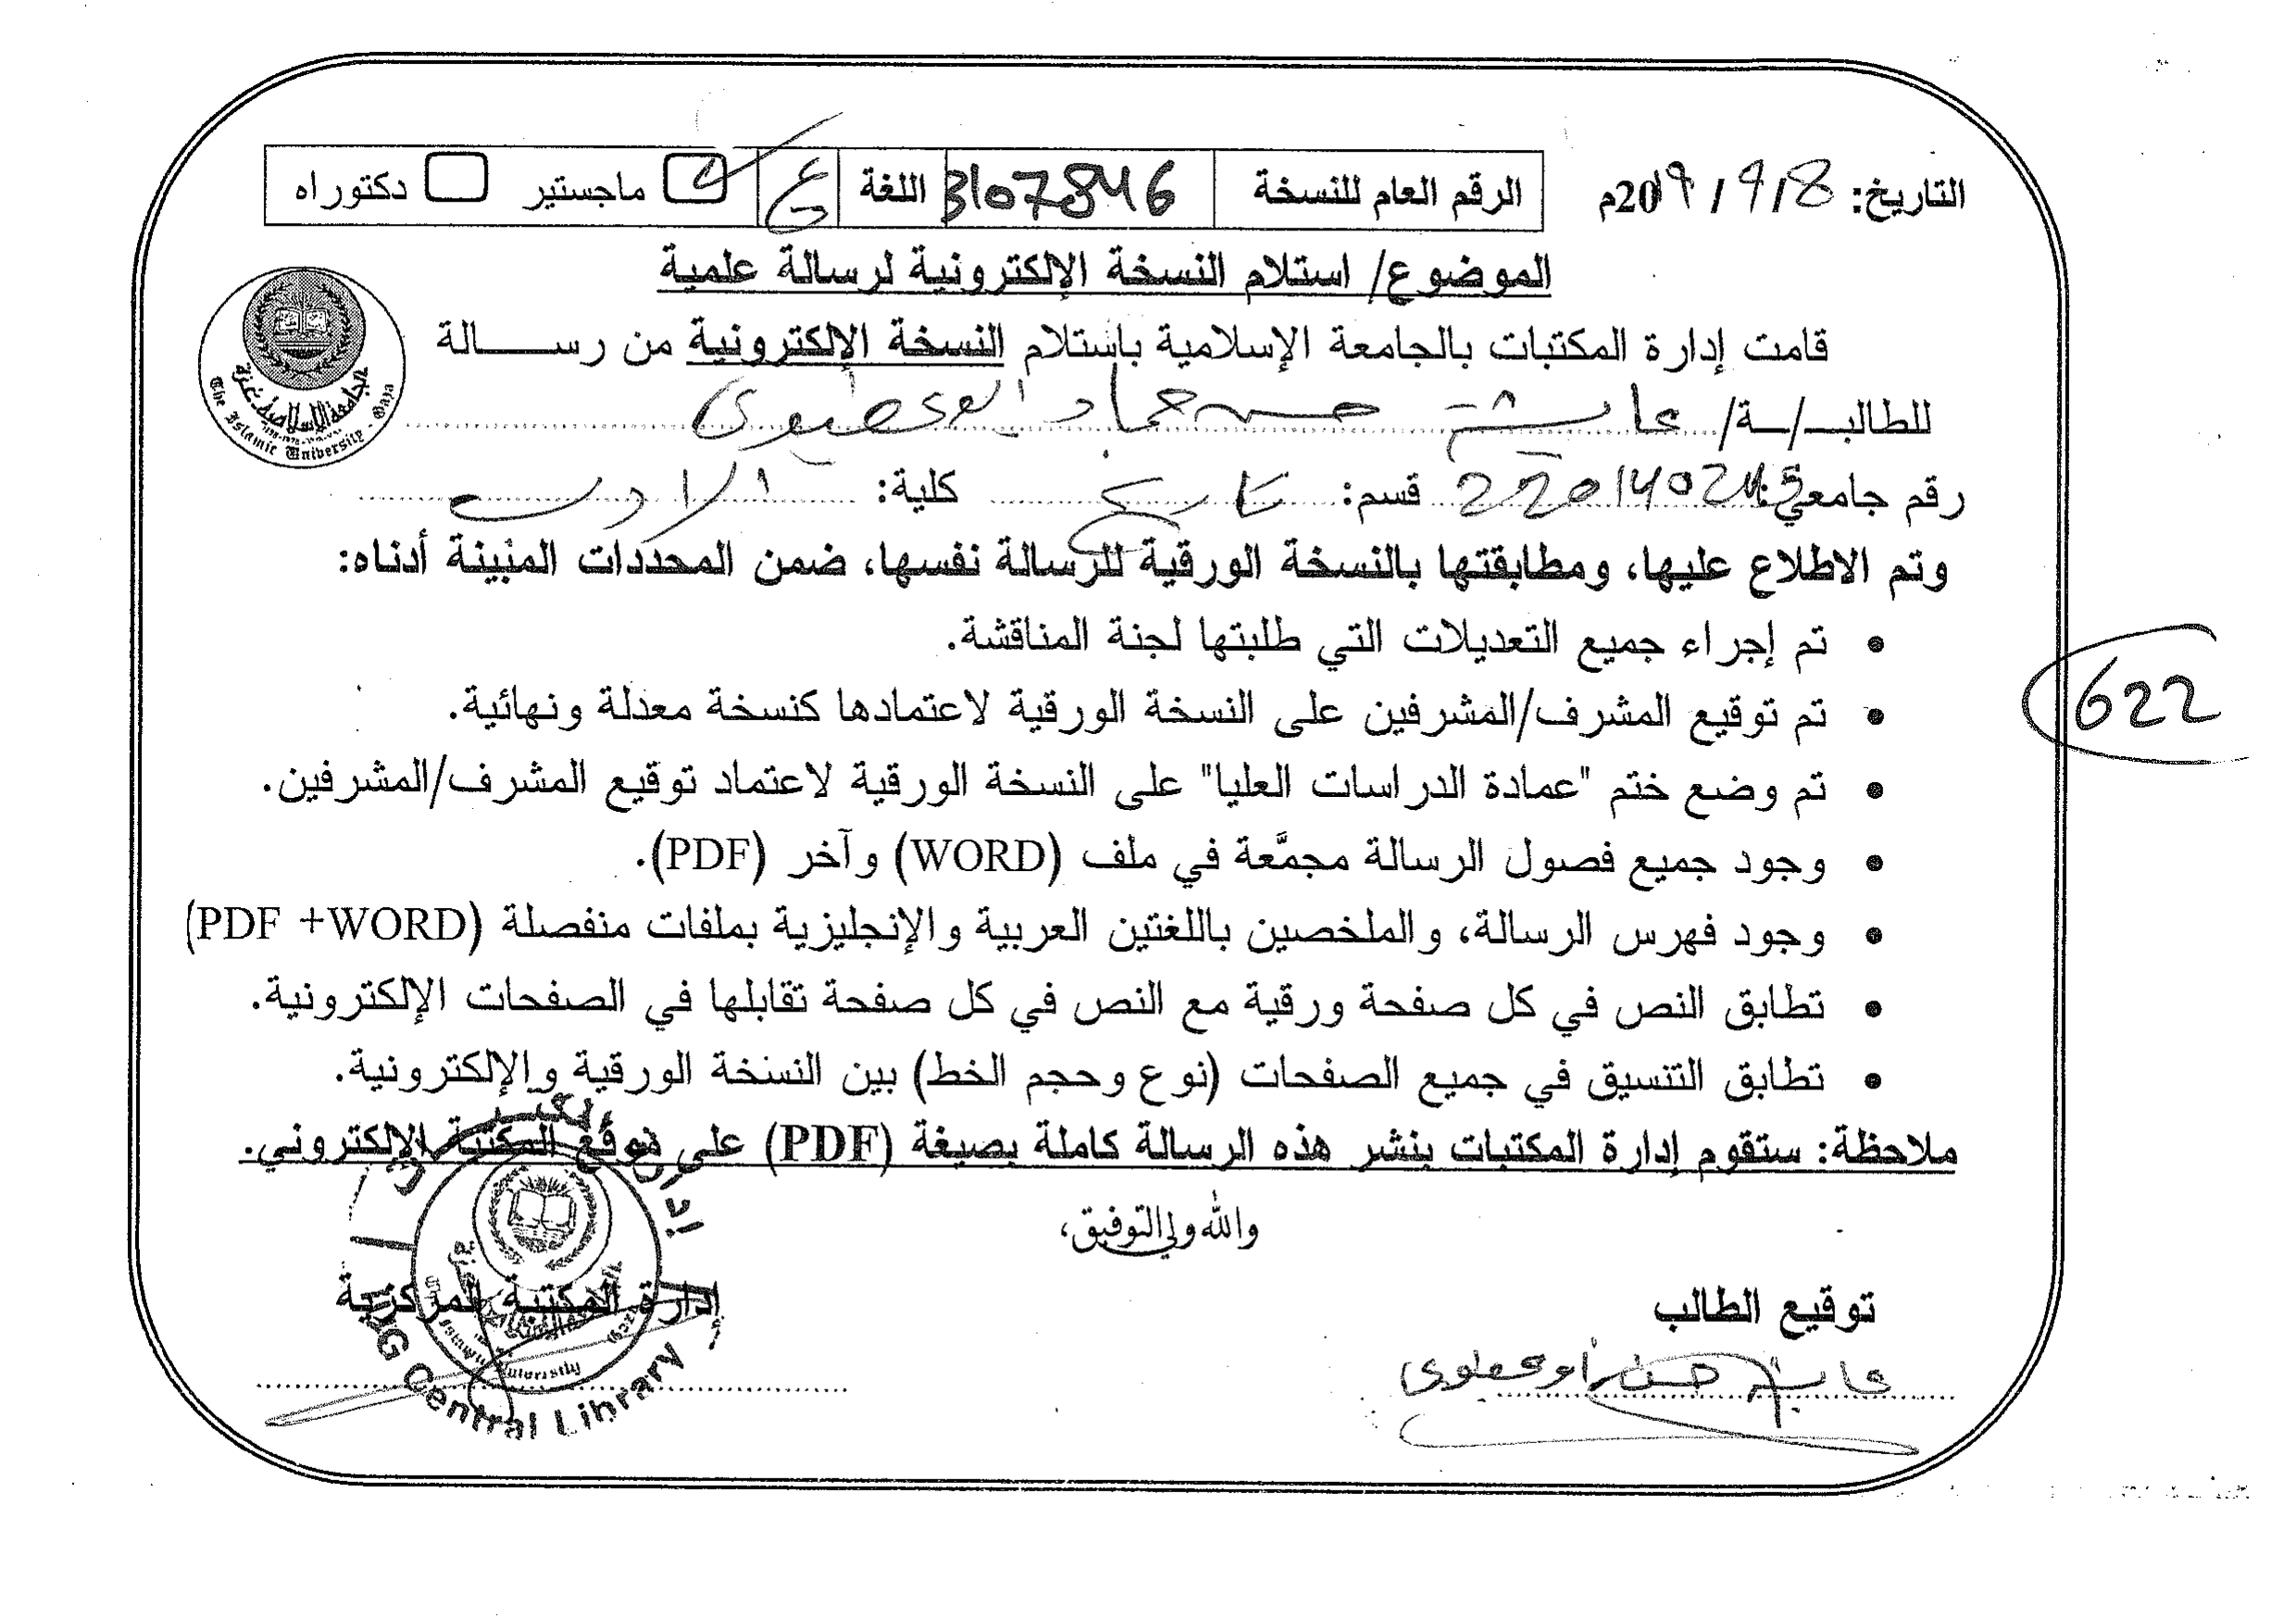 التاريخ: 8 / 9 / 2019م
الرقم العام للنسخة 3107846 اللغة ع ماجستير دكتوراه
الموضوع/ استلام النسخة الإلكترونية لرسالة علمية
قامت إدارة المكتبات بالجامعة الإسلامية باستلام النسخة الإلكترونية من رســـــالة
للطالبــ/ــة/ عايشة حسن حماد
رقم جامعي: 220140245 قسم: تاريخ كلية: الآداب
وتم الاطلاع عليها، ومطابقتها بالنسخة الورقية للرسالة نفسها، ضمن المحددات المبينة أدناه:
• تم إجراء جميع التعديلات التي طلبتها لجنة المناقشة.
• تم توقيع المشرف/المشرفين على النسخة الورقية لاعتمادها كنسخة معدلة ونهائية.
622
• تم وضع ختم "عمادة الدراسات العليا" على النسخة الورقية لاعتماد توقيع المشرف/المشرفين.
• وجود جميع فصول الرسالة مجمَّعة في ملف (WORD) وآخر (PDF).
• وجود فهرس الرسالة، والملخصين باللغتين العربية والإنجليزية بملفات منفصلة (PDF +WORD)
• تطابق النص في كل صفحة ورقية مع النص في كل صفحة تقابلها في الصفحات الإلكترونية.
• تطابق التنسيق في جميع الصفحات (نوع وحجم الخط) بين النسخة الورقية والإلكترونية.
ملاحظة: ستقوم إدارة المكتبات بنشر هذه الرسالة كاملة بصيغة (PDF) على موقع المكتبة الإلكتروني.
والله ولي التوفيق،
توقيع الطالب
إدارة المكتبة المركزية
عايشة حسن
الجامعة الإسلامية غزة
The Islamic University - Gaza
IUG Central Library